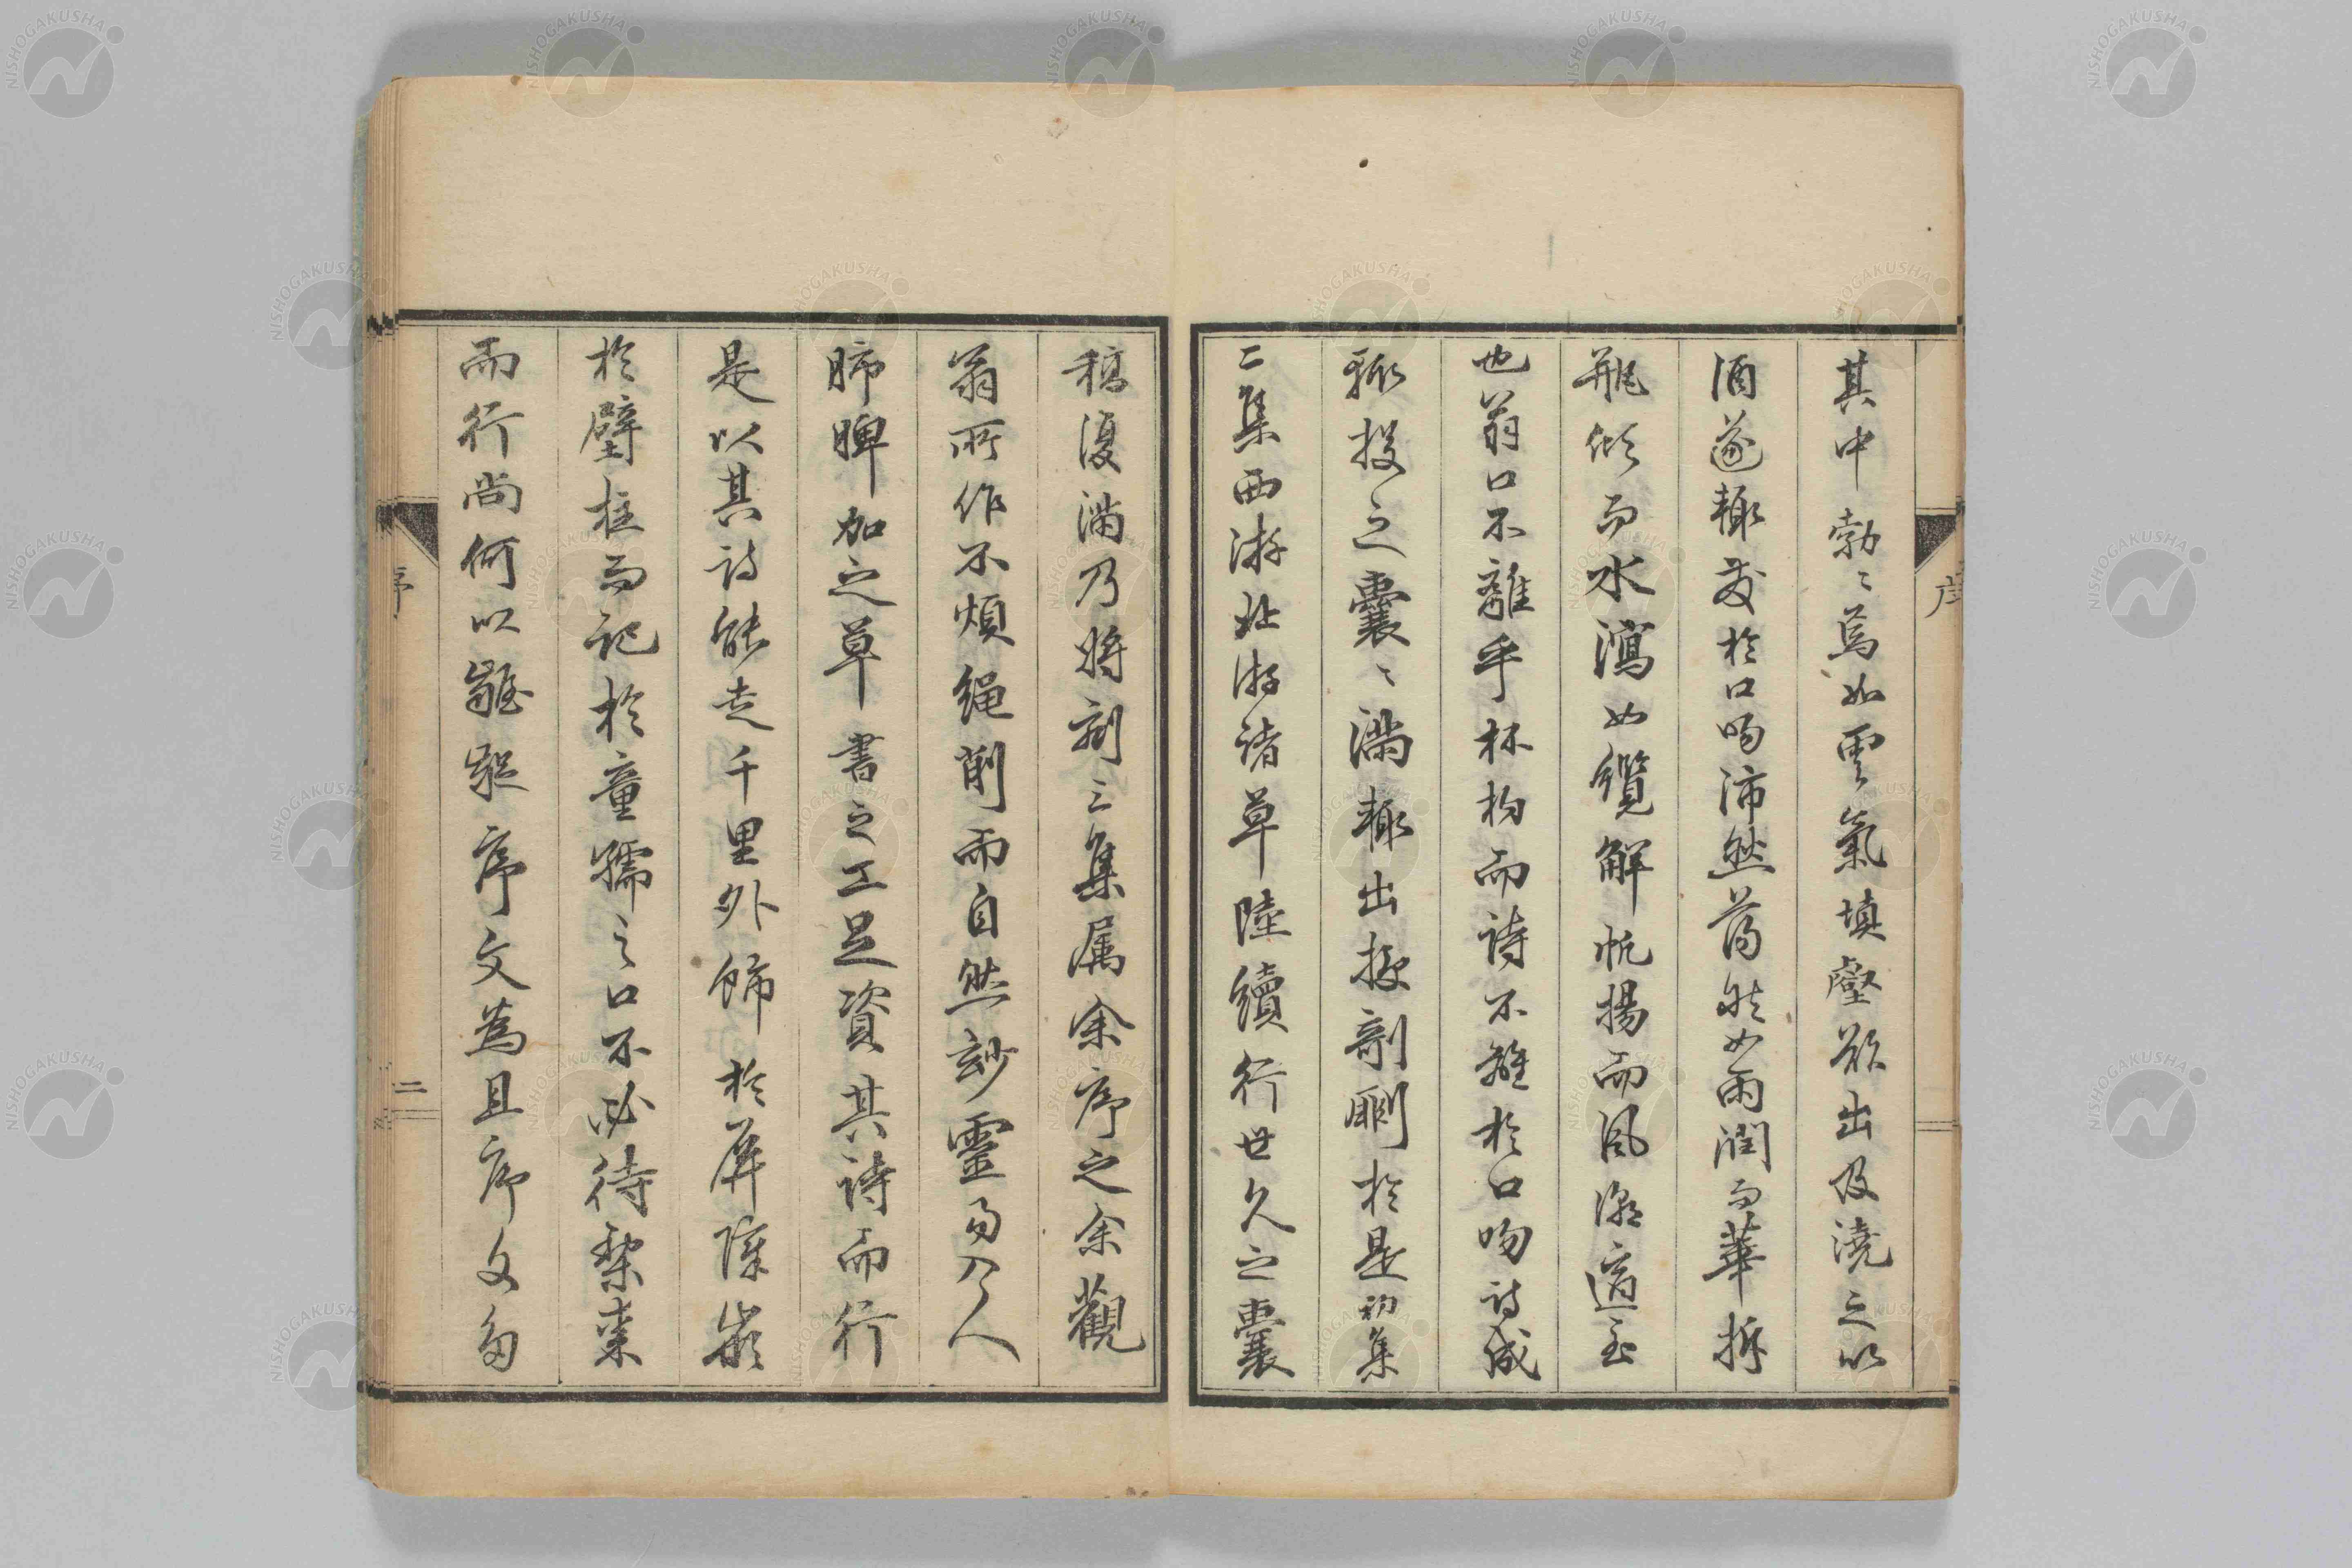 其中勃〻焉如雲氣填壑欲出及澆之以
酒遂輒發於口吻沛然藹然如雨潤而華拆
瓶傾而水瀉如纜解帆揚而風濤適至
也翁口不離乎杯杓而詩不離於口吻詩成
輒投之囊〻滿輒出授剞劂於是初集
二集西游北游諸草陸續行世久之囊
稿復滿乃將刻三集屬余序之余觀
翁所作不煩繩削而自然妙靈易入人
肺脾加之草書之工足資其詩而行
是以其詩能走千里外飾於屏障嵌
於壁柱而記於童孺之口不必待梨棗
而行尚何以齷齪序文為且序文多
序
序
二
NISHOGAKUSHA